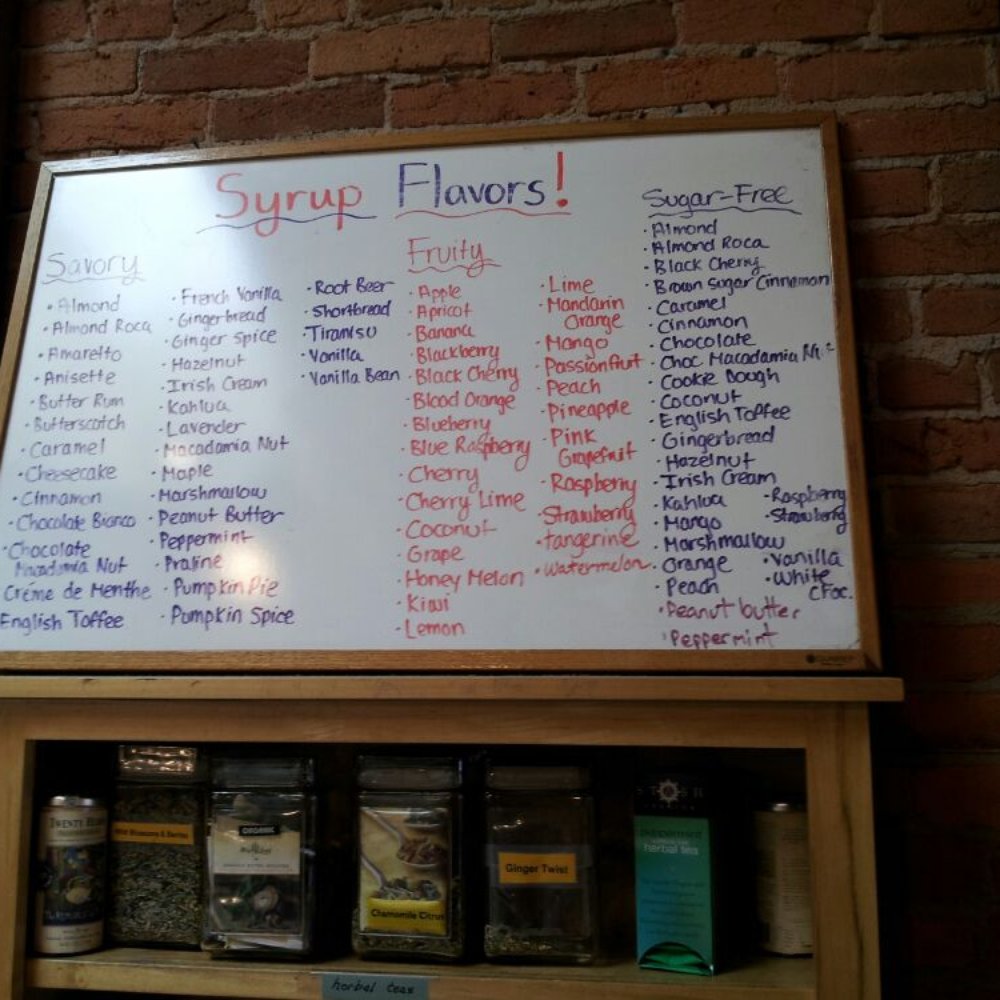 Syrup Flavors!
Savory
· Almond
· Almond Roca
· Amaretto
· Anisette
· Butter Rum
· Butterscotch
· Caramel
· Cheesecake
· Cinnamon
· Chocolate Bianco
· Chocolate
Macadamia Nut
Créme de Menthe
English Toffee
· French Vanilla
· Gingerbread
· Ginger Spice
· Hazelnut
· Irish Cream
· Kahlua
· Lavender
· Macadamia Nut
· Maple
· Marshmallow
· Peanut Butter
· Peppermint
· Praline
· Pumpkin Pie
· Pumpkin Spice
· Root Beer
· Shortbread
· Tiramisu
· Vanilla
· Vanilla Bean
Fruity
· Apple
· Apricot
· Banana
· Blackberry
· Black Cherry
· Blood Orange
· Blueberry
· Blue Raspberry
· Cherry
· Cherry Lime
· Coconut
· Grape
· Honey Melon
· Kiwi
· Lemon
· Lime
· Mandarin
Orange
· Mango
· Passionfruit
· Peach
· Pineapple
· Pink
Grapefruit
· Raspberry
· Strawberry
· tangerine
· watermelon
Sugar-Free
· Almond
· Almond Roca
· Black Cherry
· Brown Sugar Cinnamon
· Caramel
· Cinnamon
· Chocolate
· Choc. Macadamia
· Cookie Dough
· Coconut
· English Toffee
· Gingerbread
· Hazelnut
· Irish Cream
· Kahlua
· Mango
· Marshmallow
· Orange
· Peach
· Peanut butter
· Peppermint
· Raspberry
· Strawberry
· Vanilla
· White
Choc.
Wild Blossoms & Berries
ORGANIC
Chamomile Citrus
Ginger Twist
peppermint
herbal tea
herbal teas